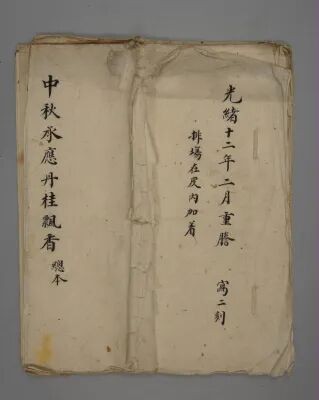 光緒十二年二月重謄 寫二刻
排場在皮內加着
中秋承應丹桂飄香 總本